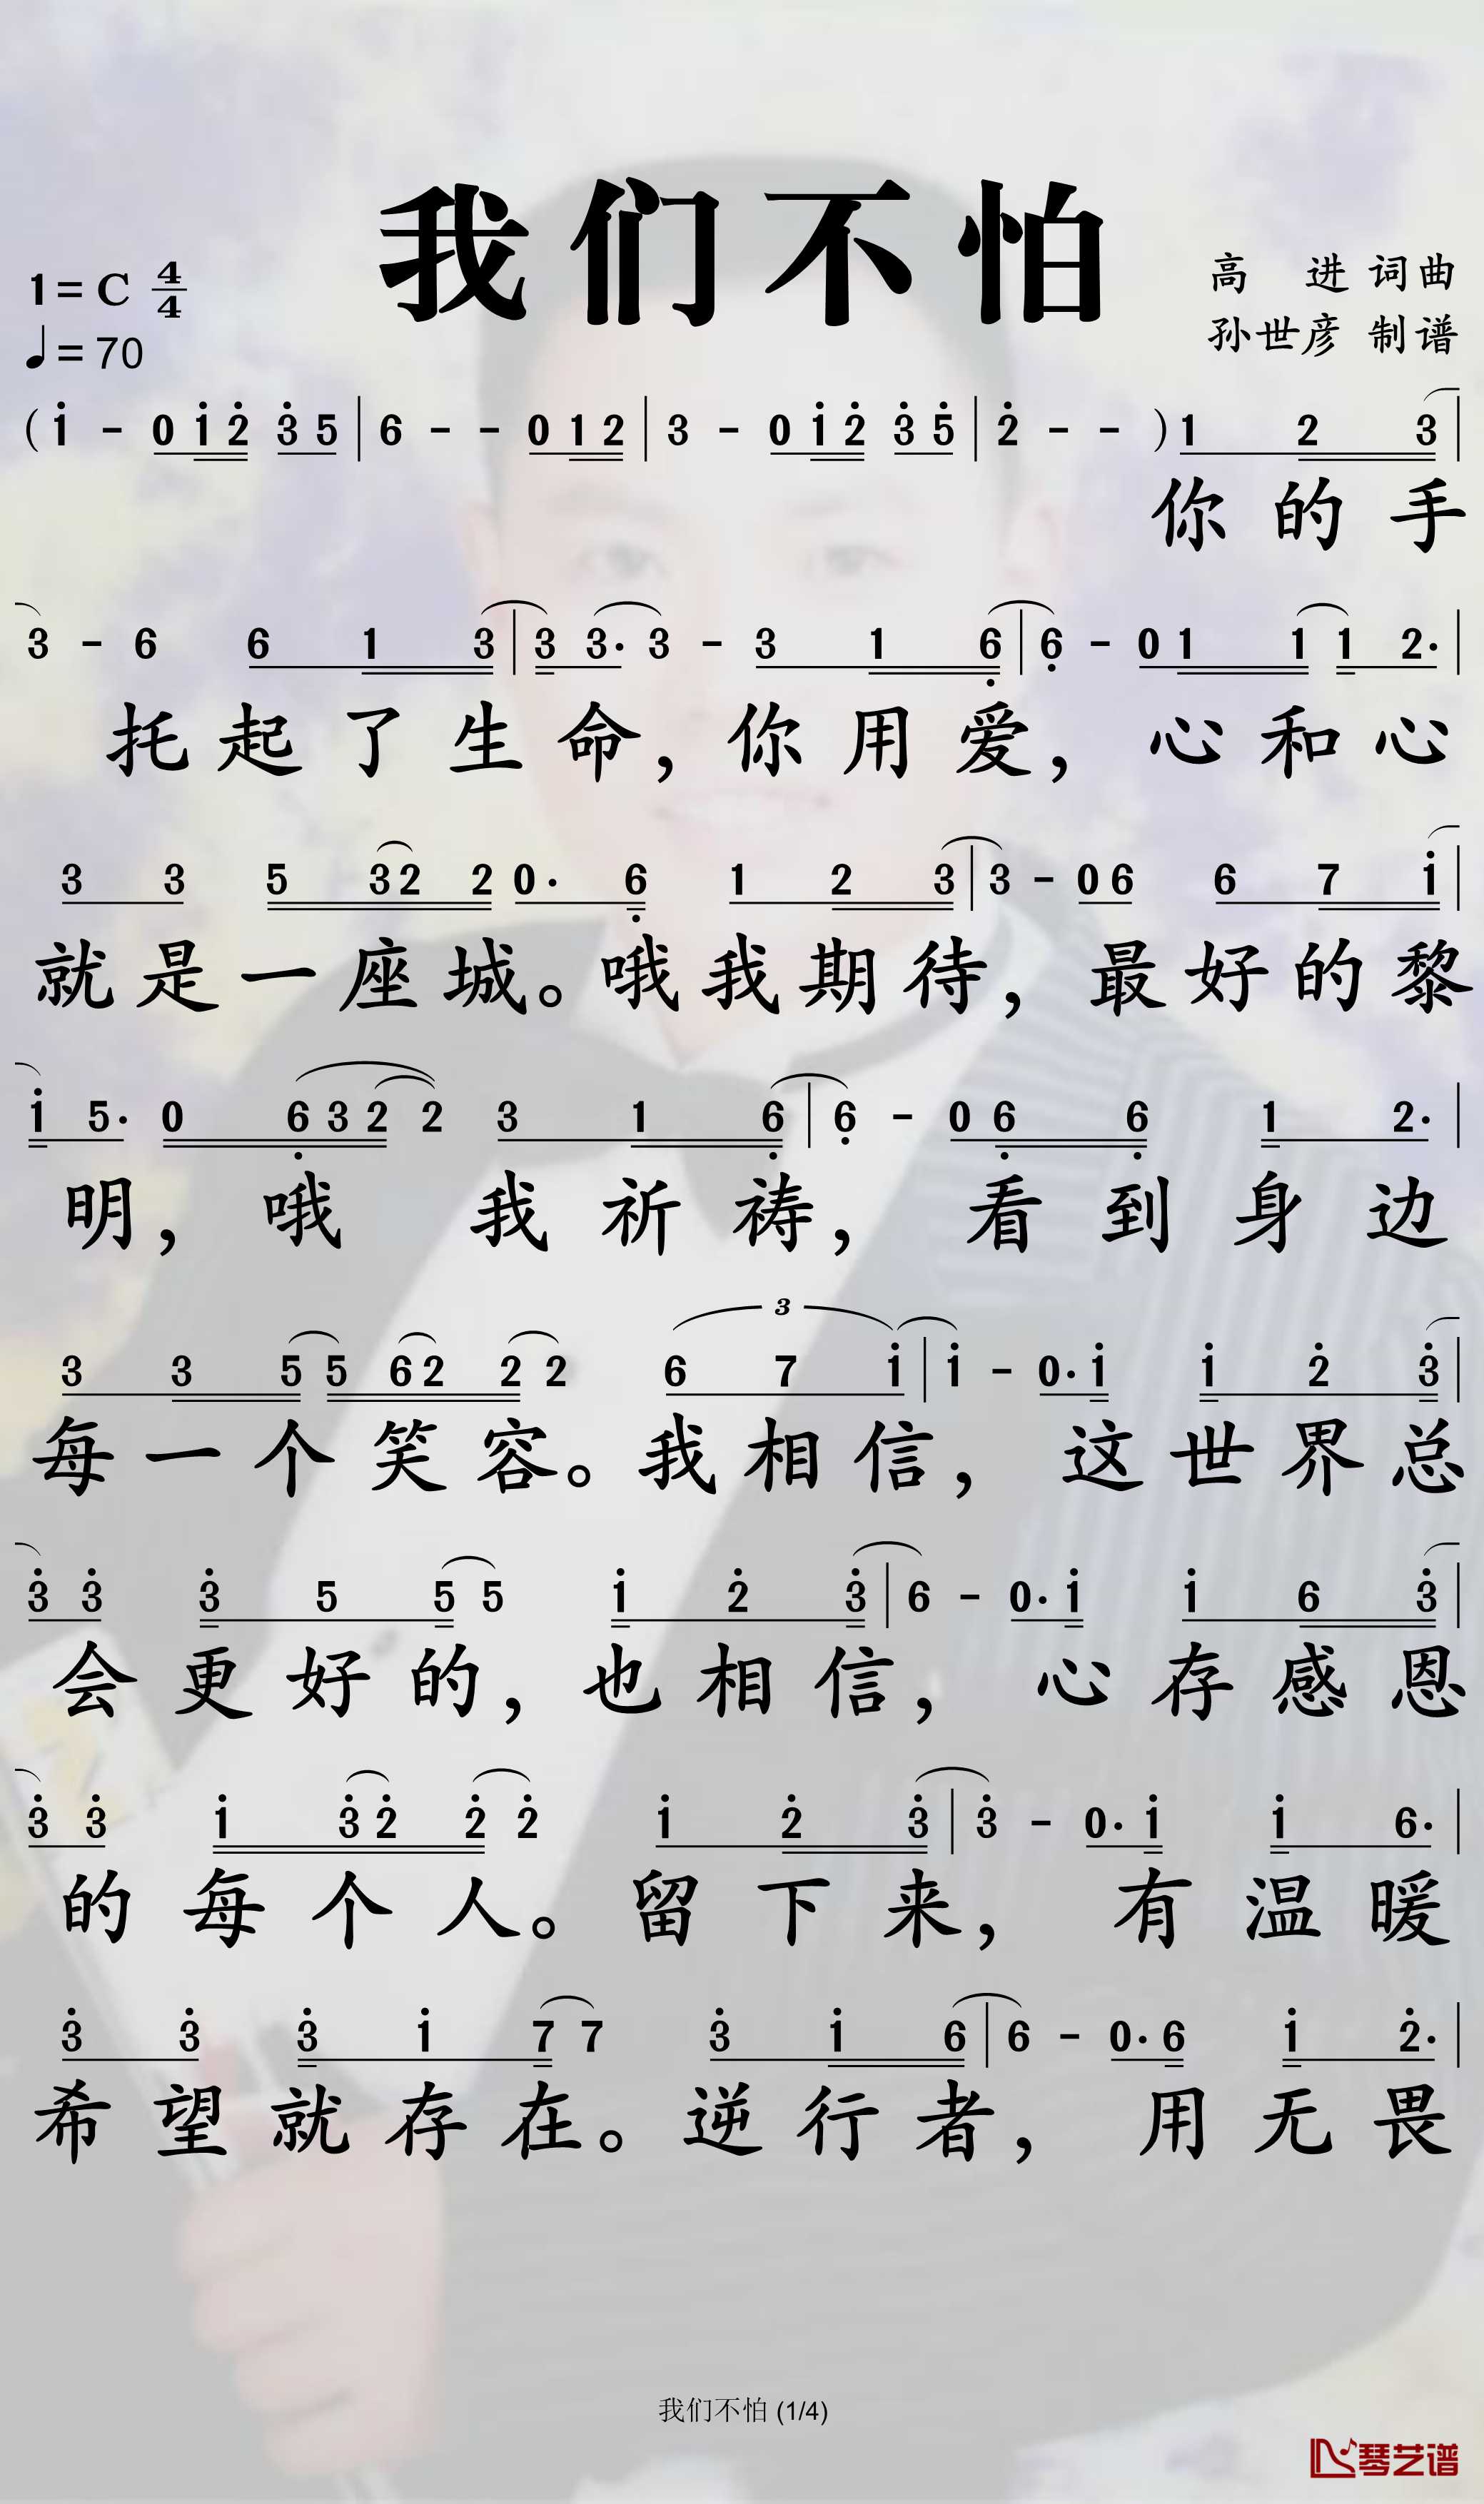 我们不怕
1=C 4/4
高 进 词曲
♩=70
孙世彦 制谱
( 1̇ - 0 1̇ 2̇ 3̇ 5 | 6 - - 0 1 2 | 3 - 0 1̇ 2̇ 3̇ 5̇ | 2̇ - - ) 1 2 3 |
你 的 手
3 - 6 6 1 3 | 3 3· 3 - 3 1 6̣ | 6̣ - 0 1 1 1 2· |
托 起 了 生 命， 你 用 爱， 心 和 心
3 3 5 3 2 2 0· 6̣ 1 2 3 | 3 - 0 6 6 7 1̇ |
就 是 一 座 城。 哦 我 期 待， 最 好 的 黎
1̇ 5· 0 6̣ 3 2 2 3 1 6̣ | 6̣ - 0 6̣ 6̣ 1 2· |
明， 哦 我 祈 祷， 看 到 身 边
3 3 5 5 6 2 2 2 3 6 7 1̇ | 1̇ - 0· 1̇ 1̇ 2̇ 3̇ |
每 一 个 笑 容。 我 相 信， 这 世 界 总
3̇ 3̇ 3̇ 5 5 5 1̇ 2̇ 3̇ | 6 - 0· 1̇ 1̇ 6 3̇ |
会 更 好 的， 也 相 信， 心 存 感 恩
3̇ 3̇ 1̇ 3̇ 2̇ 2̇ 2̇ 1̇ 2̇ 3̇ | 3̇ - 0· 1̇ 1̇ 6· |
的 每 个 人。 留 下 来， 有 温 暖
3̇ 3̇ 3̇ 1̇ 7 7 3̇ 1̇ 6 | 6 - 0· 6 1̇ 2̇· |
希 望 就 存 在。 逆 行 者， 用 无 畏
我们不怕 (1/4)
琴艺谱